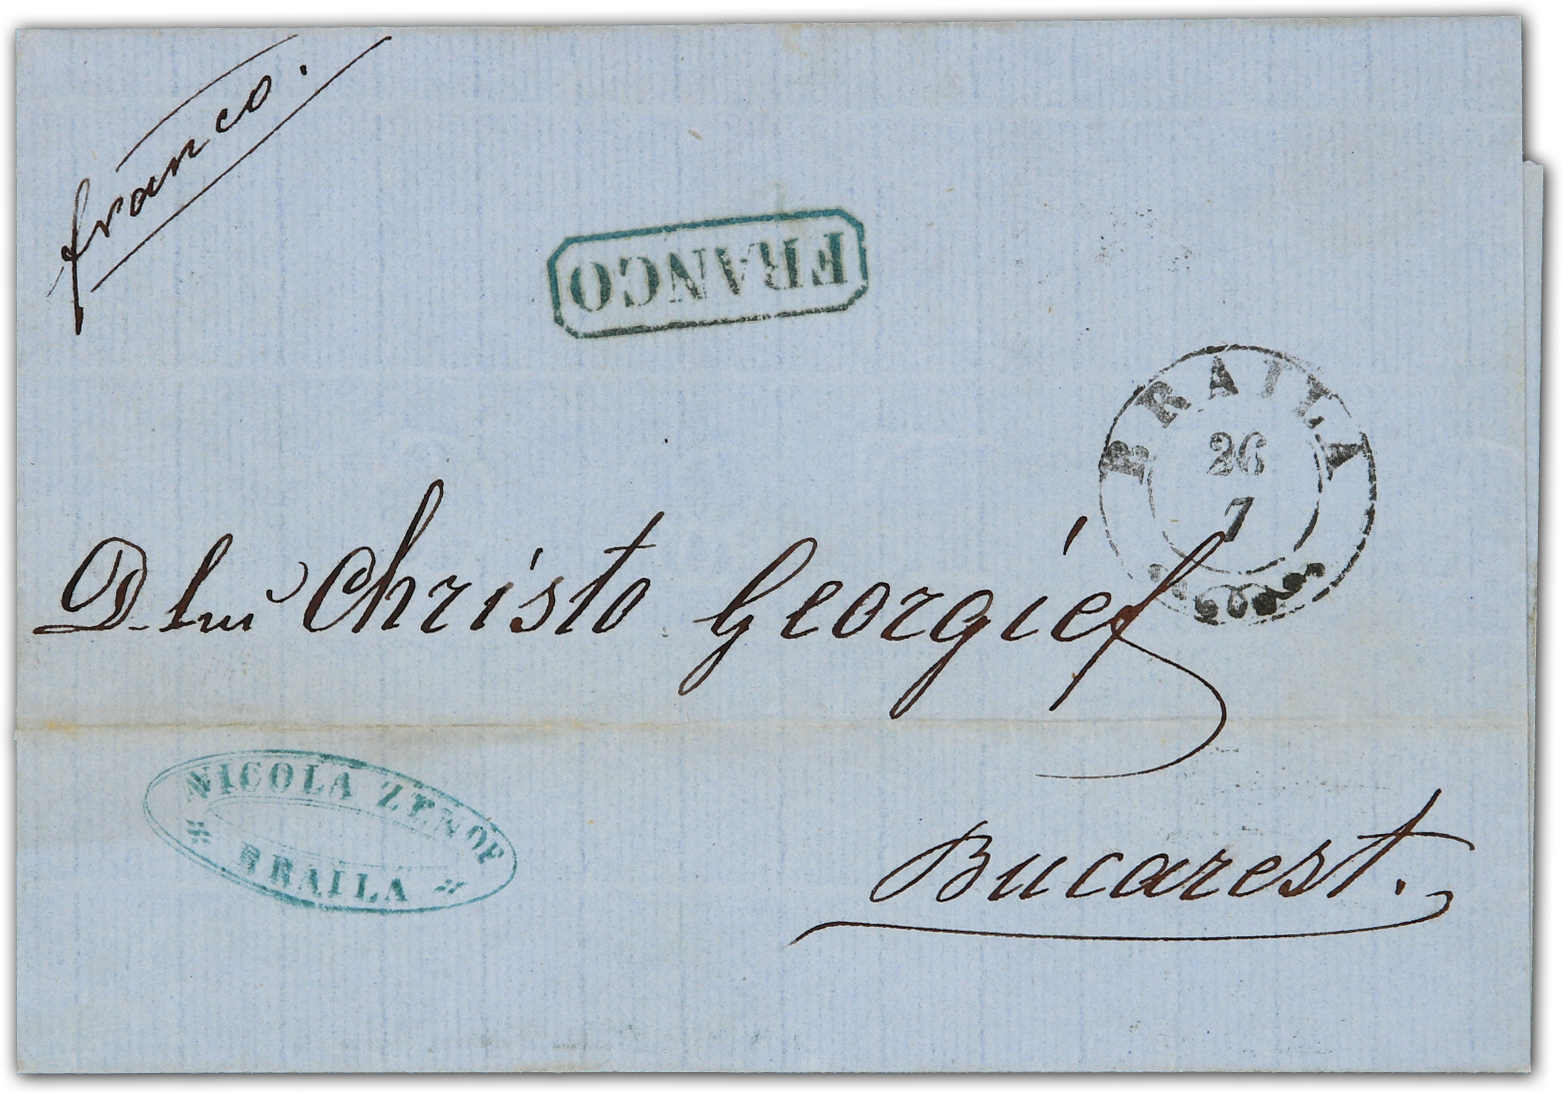 franco.
FRANCO
BRAILA
26
7
D. lui Christo Georgief
NICOLA ZENOF
BRAILA
Bucarest.